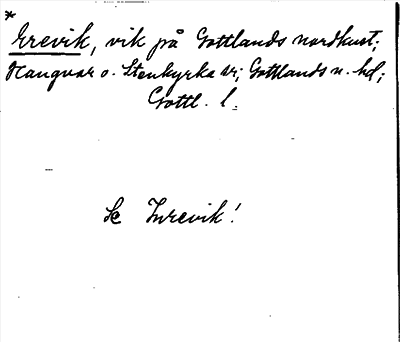 *
Irevik, vik på Gottlands nordkust;
Hangvar o. Stenkyrka sr; Gottlands n. hd;
Gottl. l.
Se Inrevik!